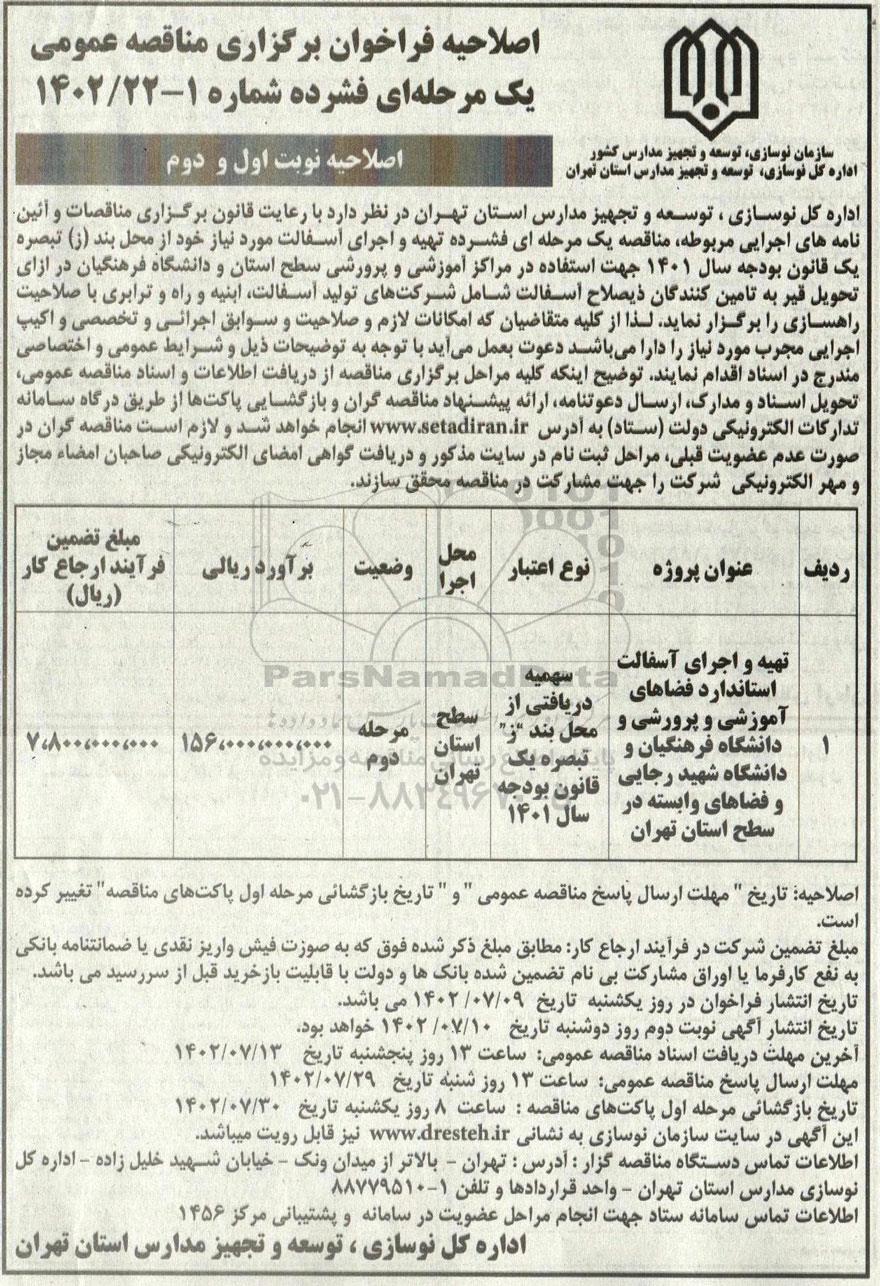 اصلاحیه فراخوان برگزاری مناقصه عمومی
یک مرحله‌ای فشرده شماره ۱-۱۴۰۲/۲۲
اصلاحیه نوبت اول و دوم
سازمان نوسازی، توسعه و تجهیز مدارس کشور
اداره کل نوسازی، توسعه و تجهیز مدارس استان تهران
اداره کل نوسازی ، توسعه و تجهیز مدارس استان تهران در نظر دارد با رعایت قانون برگزاری مناقصات و آئین
نامه های اجرایی مربوطه، مناقصه یک مرحله ای فشرده تهیه و اجرای آسفالت مورد نیاز خود از محل بند (ز) تبصره
یک قانون بودجه سال ۱۴۰۱ جهت استفاده در مراکز آموزشی و پرورشی سطح استان و دانشگاه فرهنگیان در ازای
تحویل قیر به تامین کنندگان ذیصلاح آسفالت شامل شرکت‌های تولید آسفالت، ابنیه و راه و ترابری با صلاحیت
راهسازی را برگزار نماید. لذا از کلیه متقاضیان که امکانات لازم و صلاحیت و سوابق اجرائی و تخصصی و اکیپ
اجرایی مجرب مورد نیاز را دارا می‌باشد دعوت بعمل می‌آید با توجه به توضیحات ذیل و شرایط عمومی و اختصاصی
مندرج در اسناد اقدام نمایند. توضیح اینکه کلیه مراحل برگزاری مناقصه از دریافت اطلاعات و اسناد مناقصه عمومی،
تحویل اسناد و مدارک، ارسال دعوتنامه، ارائه پیشنهاد مناقصه گران و بازگشایی پاکت‌ها از طریق درگاه سامانه
تدارکات الکترونیکی دولت (ستاد) به آدرس www.setadiran.ir انجام خواهد شد و لازم است مناقصه گران در
صورت عدم عضویت قبلی، مراحل ثبت نام در سایت مذکور و دریافت گواهی امضای الکترونیکی صاحبان امضاء مجاز
و مهر الکترونیکی شرکت را جهت مشارکت در مناقصه محقق سازند.
ردیف
عنوان پروژه
نوع اعتبار
محل
اجرا
وضعیت
برآورد ریالی
مبلغ تضمین
فرآیند ارجاع کار
(ریال)
۱
تهیه و اجرای آسفالت
استاندارد فضاهای
آموزشی و پرورشی و
دانشگاه فرهنگیان و
دانشگاه شهید رجایی
و فضاهای وابسته در
سطح استان تهران
سهمیه
دریافتی از
محل بند "ز"
تبصره یک
قانون بودجه
سال ۱۴۰۱
سطح
استان
تهران
مرحله
دوم
۱۵۶،۰۰۰،۰۰۰،۰۰۰
۷،۸۰۰،۰۰۰،۰۰۰
ParsNamadData
پایگاه اطلاع رسانی مناقصه و مزایده
اصلاحیه: تاریخ " مهلت ارسال پاسخ مناقصه عمومی " و " تاریخ بازگشائی مرحله اول پاکت‌های مناقصه" تغییر کرده
است.
مبلغ تضمین شرکت در فرآیند ارجاع کار: مطابق مبلغ ذکر شده فوق که به صورت فیش واریز نقدی یا ضمانتنامه بانکی
به نفع کارفرما یا اوراق مشارکت بی نام تضمین شده بانک ها و دولت با قابلیت بازخرید قبل از سررسید می باشد.
تاریخ انتشار فراخوان در روز یکشنبه تاریخ ۱۴۰۲/۰۷/۰۹ می باشد.
تاریخ انتشار آگهی نوبت دوم روز دوشنبه تاریخ ۱۴۰۲/۰۷/۱۰ خواهد بود.
آخرین مهلت دریافت اسناد مناقصه عمومی: ساعت ۱۳ روز پنجشنبه تاریخ ۱۴۰۲/۰۷/۱۳
مهلت ارسال پاسخ مناقصه عمومی: ساعت ۱۳ روز شنبه تاریخ ۱۴۰۲/۰۷/۲۹
تاریخ بازگشائی مرحله اول پاکت‌های مناقصه : ساعت ۸ روز یکشنبه تاریخ ۱۴۰۲/۰۷/۳۰
این آگهی در سایت سازمان نوسازی به نشانی www.dresteh.ir نیز قابل رویت میباشد.
اطلاعات تماس دستگاه مناقصه گزار : آدرس : تهران - بالاتر از میدان ونک - خیابان شهید خلیل زاده - اداره کل
نوسازی مدارس استان تهران - واحد قراردادها و تلفن ۱-۸۸۷۷۹۵۱۰
اطلاعات تماس سامانه ستاد جهت انجام مراحل عضویت در سامانه و پشتیبانی مرکز ۱۴۵۶
اداره کل نوسازی ، توسعه و تجهیز مدارس استان تهران